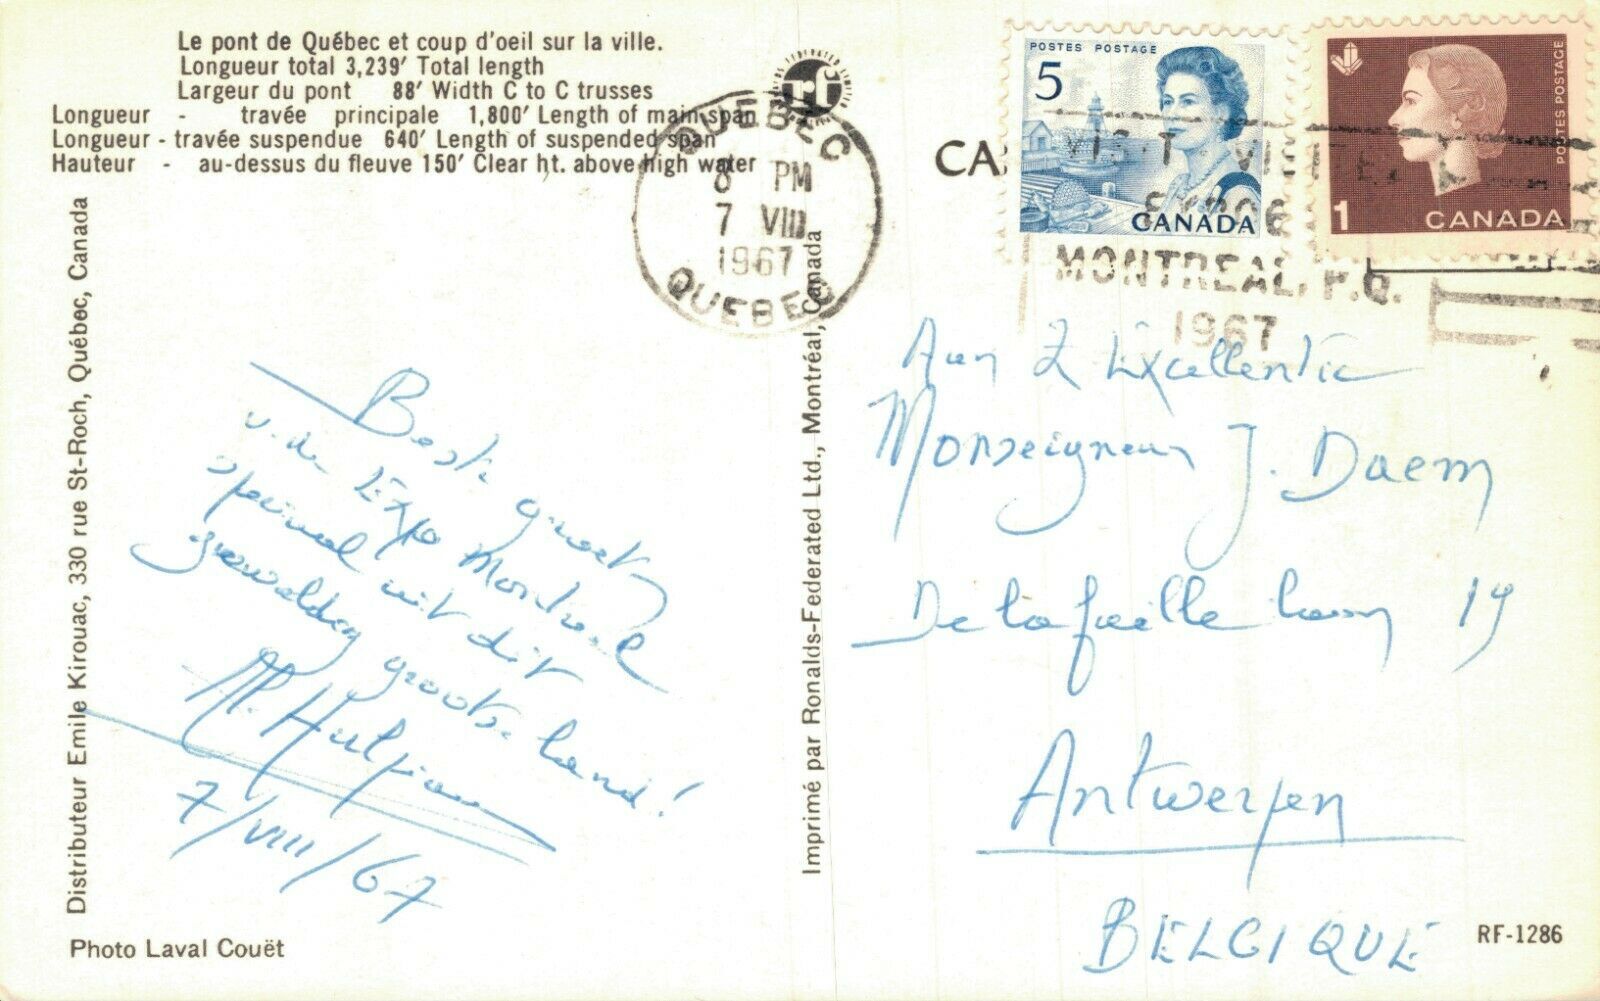 Le pont de Québec et coup d'oeil sur la ville.
Longueur total 3,239' Total length
Largeur du pont 88' Width C to C trusses
Longueur - travée principale 1,800' Length of main span
Longueur - travée suspendue 640' Length of suspended span
Hauteur - au-dessus du fleuve 150' Clear ht. above high water
Distributeur Emile Kirouac, 330 rue St-Roch, Québec, Canada
Photo Laval Couët
Imprimé par Ronalds-Federated Ltd., Montréal, Canada
rf
QUEBEC
8 PM
7 VIII
1967
QUEBEC
CA
POSTES POSTAGE
5
CANADA
POSTES POSTAGE
1
CANADA
VISIT VISITEZ
EXPO
MONTREAL, P.Q.
1967
Beste groeten
v. de Expo Montreal
speciaal uit dit
geweldig grootse land!
7/VIII/67
Aan Z Excellentie
Monseigneur J. Daem
De la Faille laan 19
Antwerpen
BELGIQUE
RF-1286